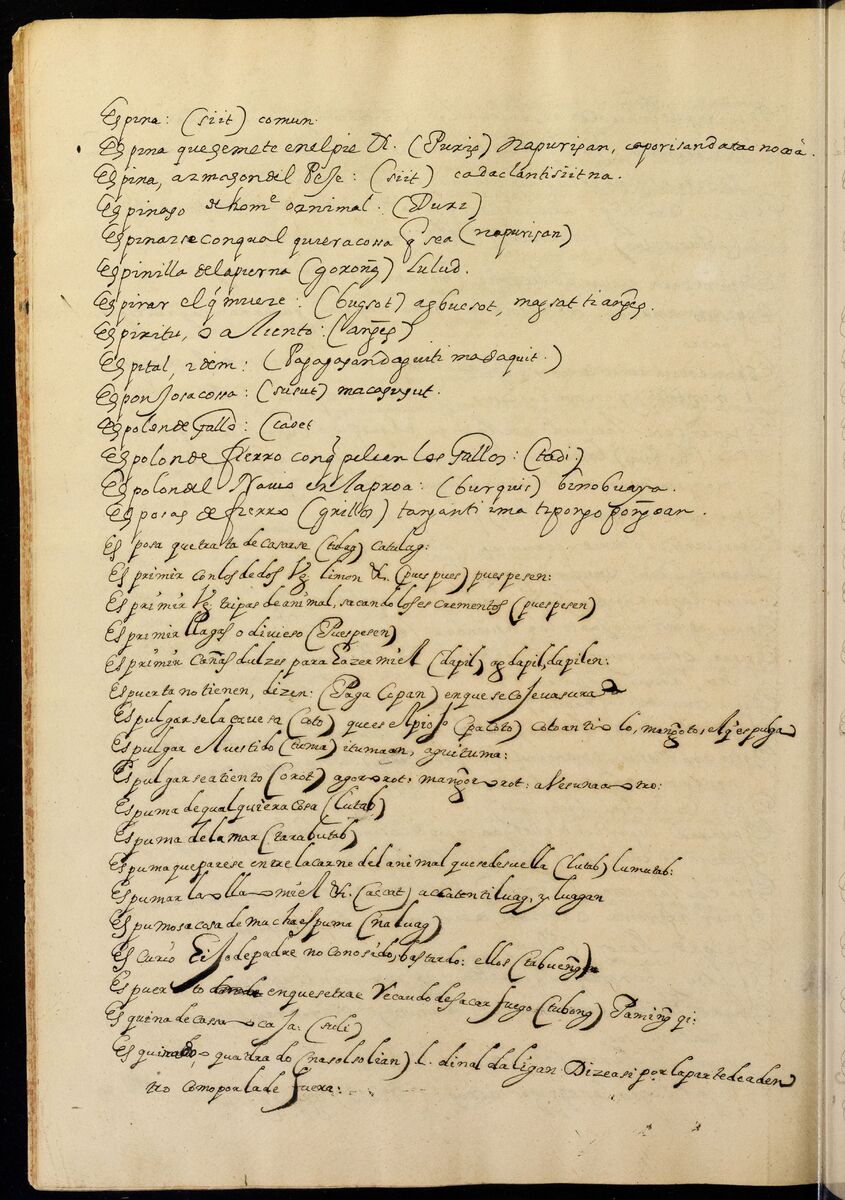 Espina: (siit) comun.
Espina que se mete en el pie &. (Puris) napurisan,
Espina, armason del Pese: (siit) cadaclan ti siit na.
Espinaso de home o animal. (Duri)
Espinarse con qual quiera cossa q̃ sea (napurisan)
Espinilla de la pierna (goron̄g) lulud.
Espirar el q̃ muere: (bugsot) agbuesot, magsat ti an̄ges.
Espiritu, o aliento: (an̄ges)
Espital, idem: (Pagagasan daguiti masaquit.)
Esponjosa cossa: (susut)
Espolon de Gallo: (taoet
Espolon de fierro con q̃ pelean los Gallos: (tadi)
Espolon del Navio en la proa: (burquis)
Esposas de fierro (grillos)
Esposa que trata de casarse (tulag) catulag:
Esprimir con los dedos Vg. limon &. (pues pues) puespesen:
Esprimir Vg. tripas de animal, sacandolos escrementos (puespesen)
Esprimir llagas o divieso (Puespesen)
Esprimir can̄as dulzes para hazer miel (dapil) ag dapil, dapilen:
Espuerta no tienen, dizen: (Paga Copan) en que se coje vasura
Espulgarse la cavesa (coto) que es el piojo (pacoto) cotoan ti olo, man̄goto, el q̃ espulga
Espulgar el vestido (tuma) itumaan, aguituma:
Espulgarse a tiento (orot) agororot: man̄gororot: a Ves una a otro:
Espuma de qual quiera cosa (lutab)
Espuma de la mar (tarabutab)
Espuma que parese entre la carne del animal que se desuella (lutab) lumutab:
Espumar la olla o miel &. (aecat) aecaten ti luag, y luagan
Espumosa cosa de mucha espuma (naluag)
Es Curio Hijo de padre no conosido, bastardo: ellos
Espuerto donde en que se trae Recaudo de sacar fuego (tubong) Pamin̄g qi:
Esquina de cassa o caja: (suli)
Esquinado, o quatrado (nasolsolian) l. dinaldaligan. Dize asi por la parte de aden
tro como por la de fuera: